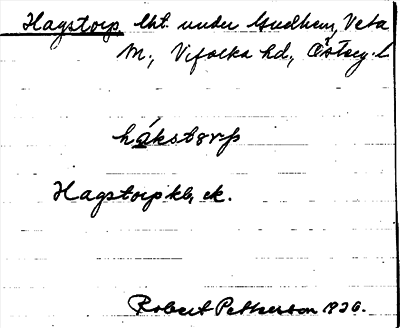 Hagstorp, lht. under Gudhem, Veta
M., Vifolka hd, Österg. l.
hákstɤrp
Hagstorp kb, ek.
Robert Petterson 1926.